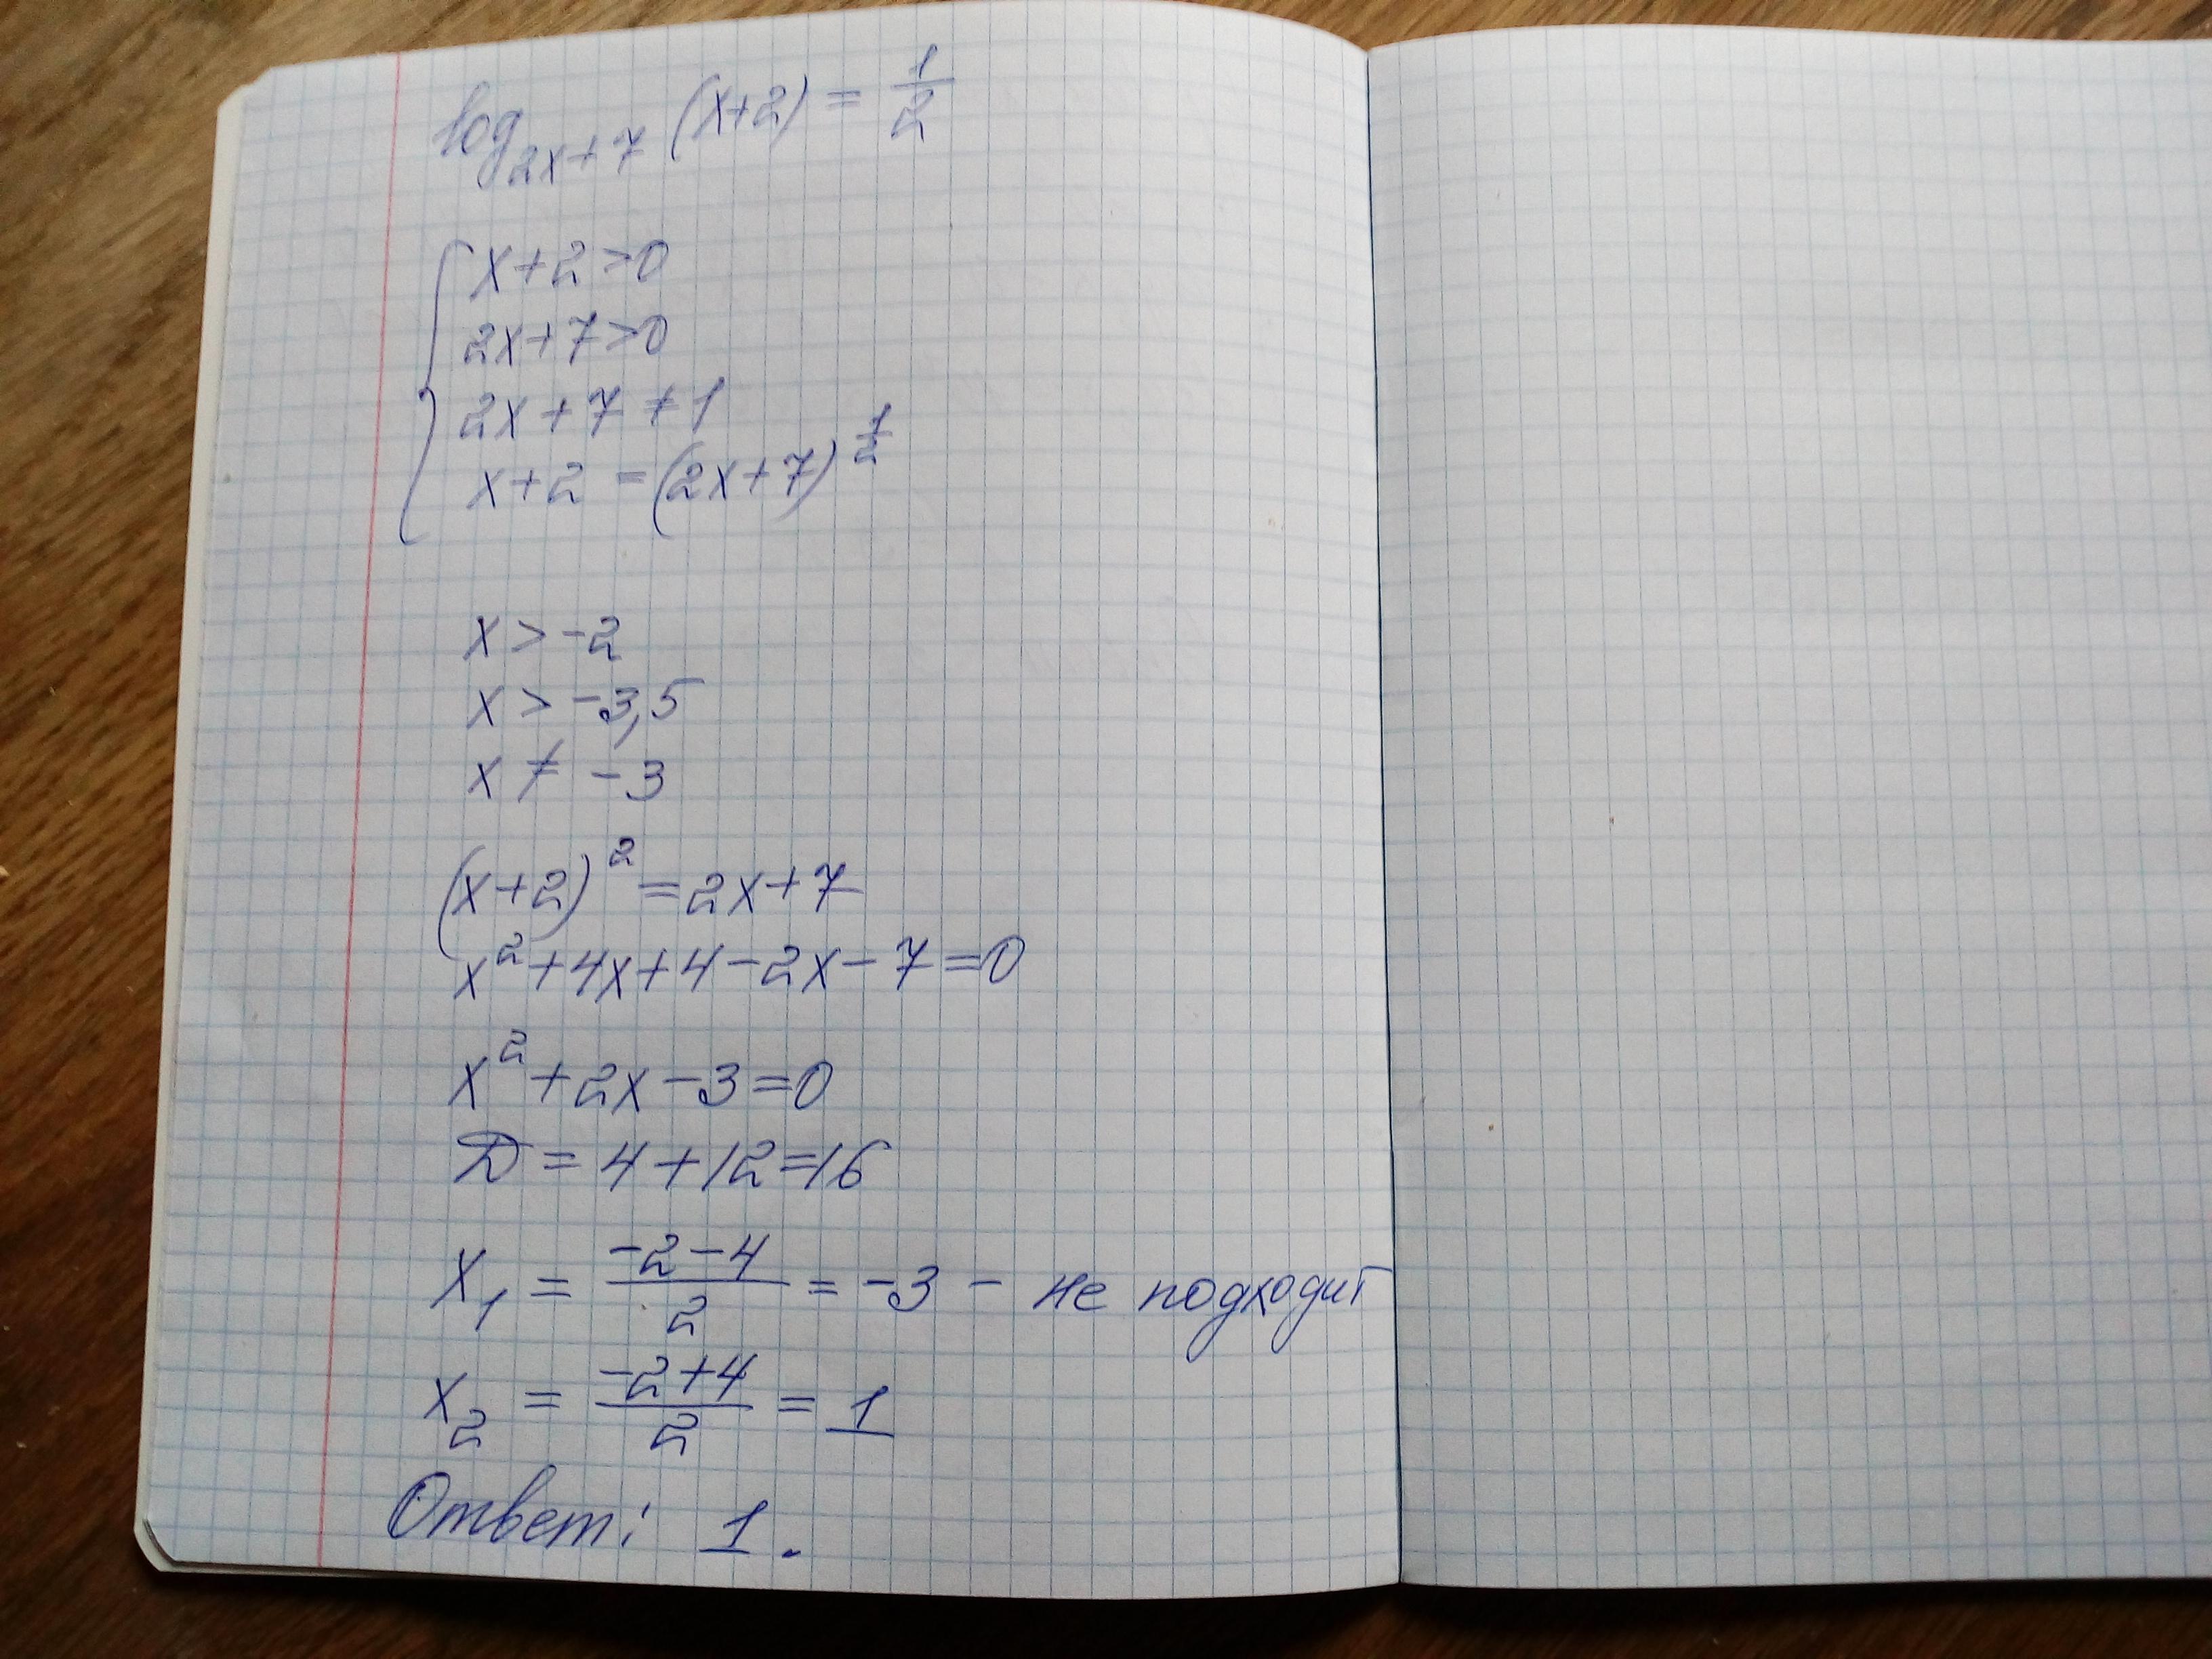 log₂ₓ₊₇ (x+2) = 1/2
x+2>0
2x+7>0
2x+7≠1
x+2=(2x+7)^(1/2)
x>-2
x>-3,5
x≠-3
(x+2)²=2x+7
x²+4x+4-2x-7=0
x²+2x-3=0
D=4+12=16
x₁ = (-2-4)/2 = -3 - не подходит
x₂ = (-2+4)/2 = 1
Ответ: 1.